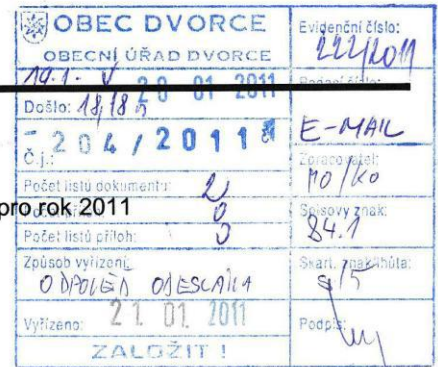 OBEC DVORCE
OBECNÍ ÚŘAD DVORCE
Evidenční číslo:
222/2011
19.1.
20 01 2011
Došlo: 18,18 h
E-MAIL
204/2011
Č.j.:
Zpracovatel:
MO/Ko
Počet listů dokumentu: 2
pro rok 2011
0
Spisový znak:
84.1
Počet listů příloh: 0
Způsob vyřízení:
ODPOVĚĎ ODESLÁNA
Skart. znak/lhůta:
S/5
Vyřízeno: 21 01 2011
Podpis:
ZALOŽIT !